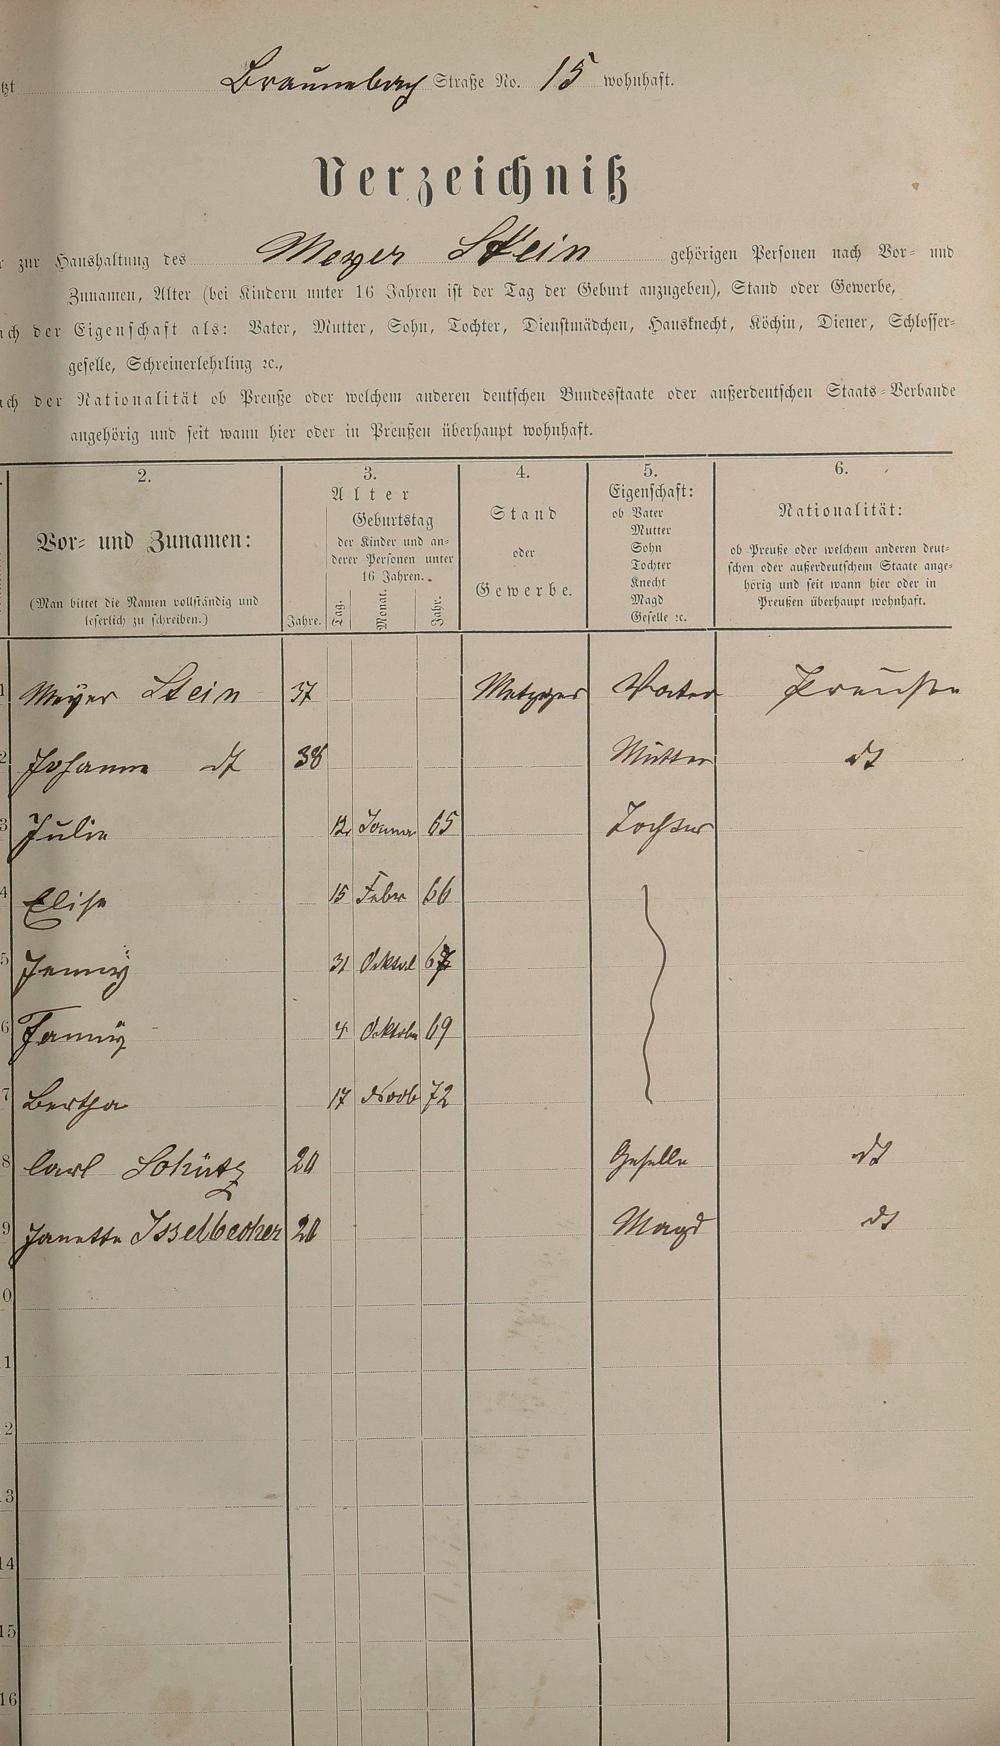 tzt Braunebach Straße No. 15 wohnhaft.
Verzeichniß
zur Haushaltung des Meyer Stein gehörigen Personen nach Vor- und
Zunamen, Alter (bei Kindern unter 16 Jahren ist der Tag der Geburt anzugeben), Stand oder Gewerbe,
ach der Eigenschaft als: Vater, Mutter, Sohn, Tochter, Dienstmädchen, Hausknecht, Köchin, Diener, Schlosser-
geselle, Schreinerlehrling ꝛc.,
ach der Nationalität ob Preuße oder welchem anderen deutschen Bundesstaate oder außerdeutschen Staats-Verbande
angehörig und seit wann hier oder in Preußen überhaupt wohnhaft.
2. 3. 4. 5. 6.
Vor- und Zunamen:
(Man bittet die Namen vollständig und
leserlich zu schreiben.)
Alter
Geburtstag
der Kinder und an-
derer Personen unter
16 Jahren.
Jahre. Tag. Monat. Jahr.
Stand
oder
Gewerbe.
Eigenschaft:
ob Vater
Mutter
Sohn
Tochter
Knecht
Magd
Geselle ꝛc.
Nationalität:
ob Preuße oder welchem anderen deut-
schen oder außerdeutschem Staate ange-
hörig und seit wann hier oder in
Preußen überhaupt wohnhaft.
1 Meyer Stein 37 Metzger Vater Preuße
2 Johanna dt 38 Mutter dt
3 Julie 12 Januar 65 Tochter
4 Elise 15 Febr 66
5 Jenny 31 67
6 Fanny 4 69
7 Bertha 17 72
8 Carl Schütz 20 Geselle dt
9 Janette Isselbecher 20 Magd dt
0
1
2
3
14
15
16